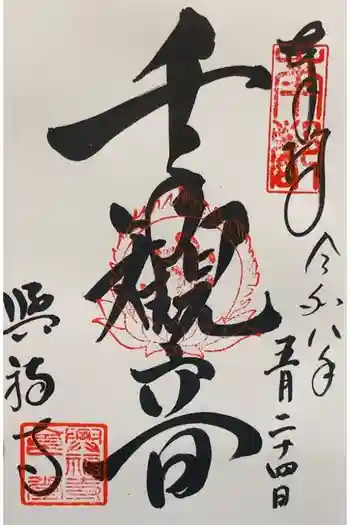 奉拝
令和八年
五月二十四日
千手観音
照福寺